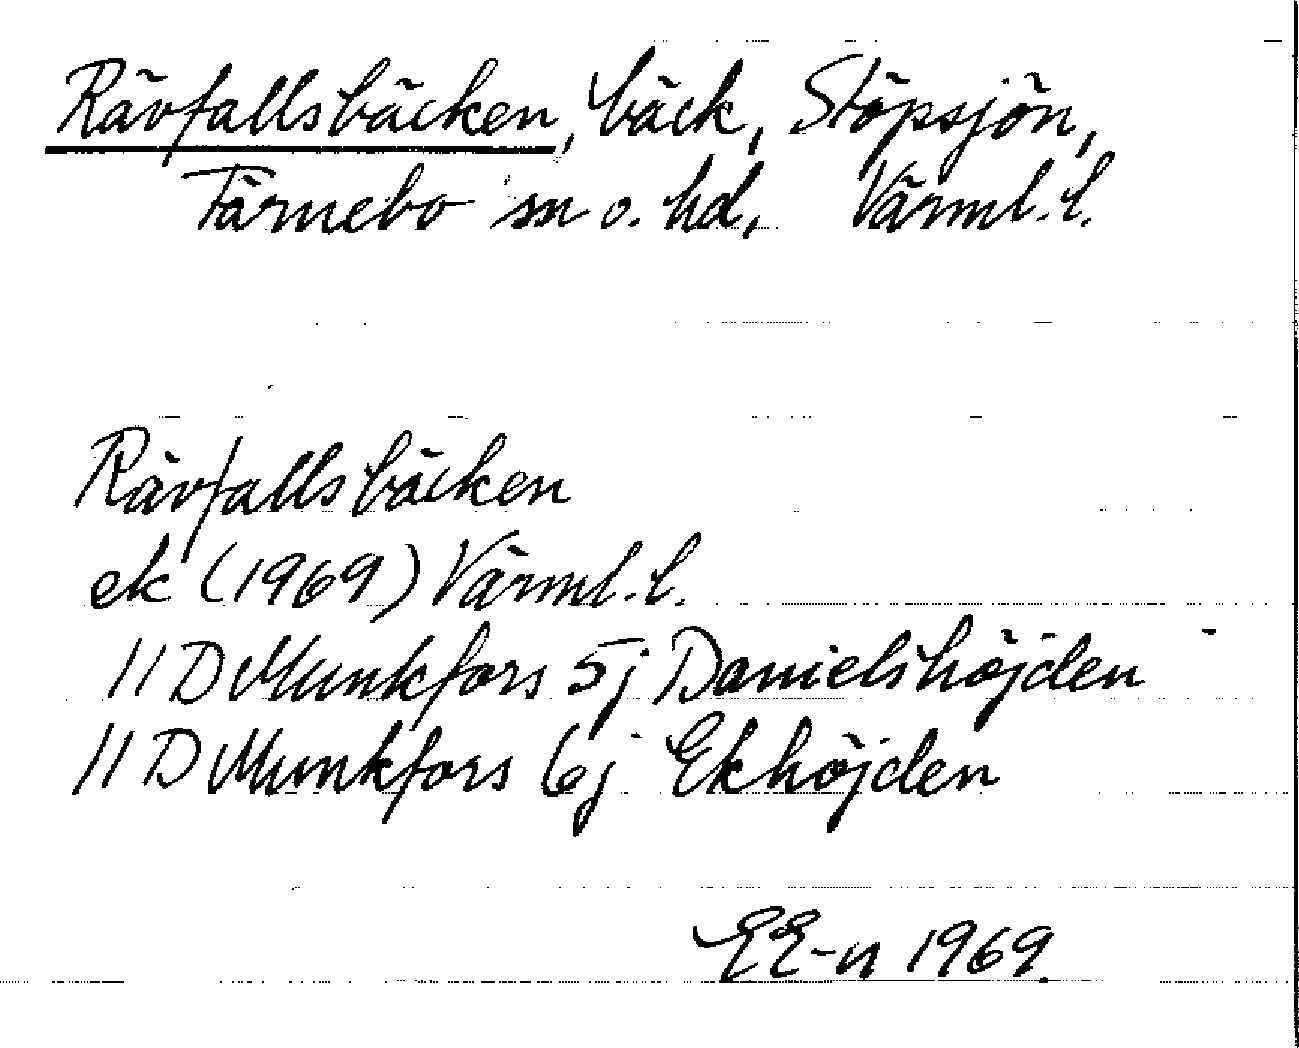 Rävfallsbäcken, bäck, Stöpsjön,
Färnebo sn o. hd, Värml. l.
Rävfallsbäcken
ek (1969) Värml. l.
11 D Munkfors 5j Danielshöjden
11 D Munkfors 6j Ekhöjden
EE-n 1969.